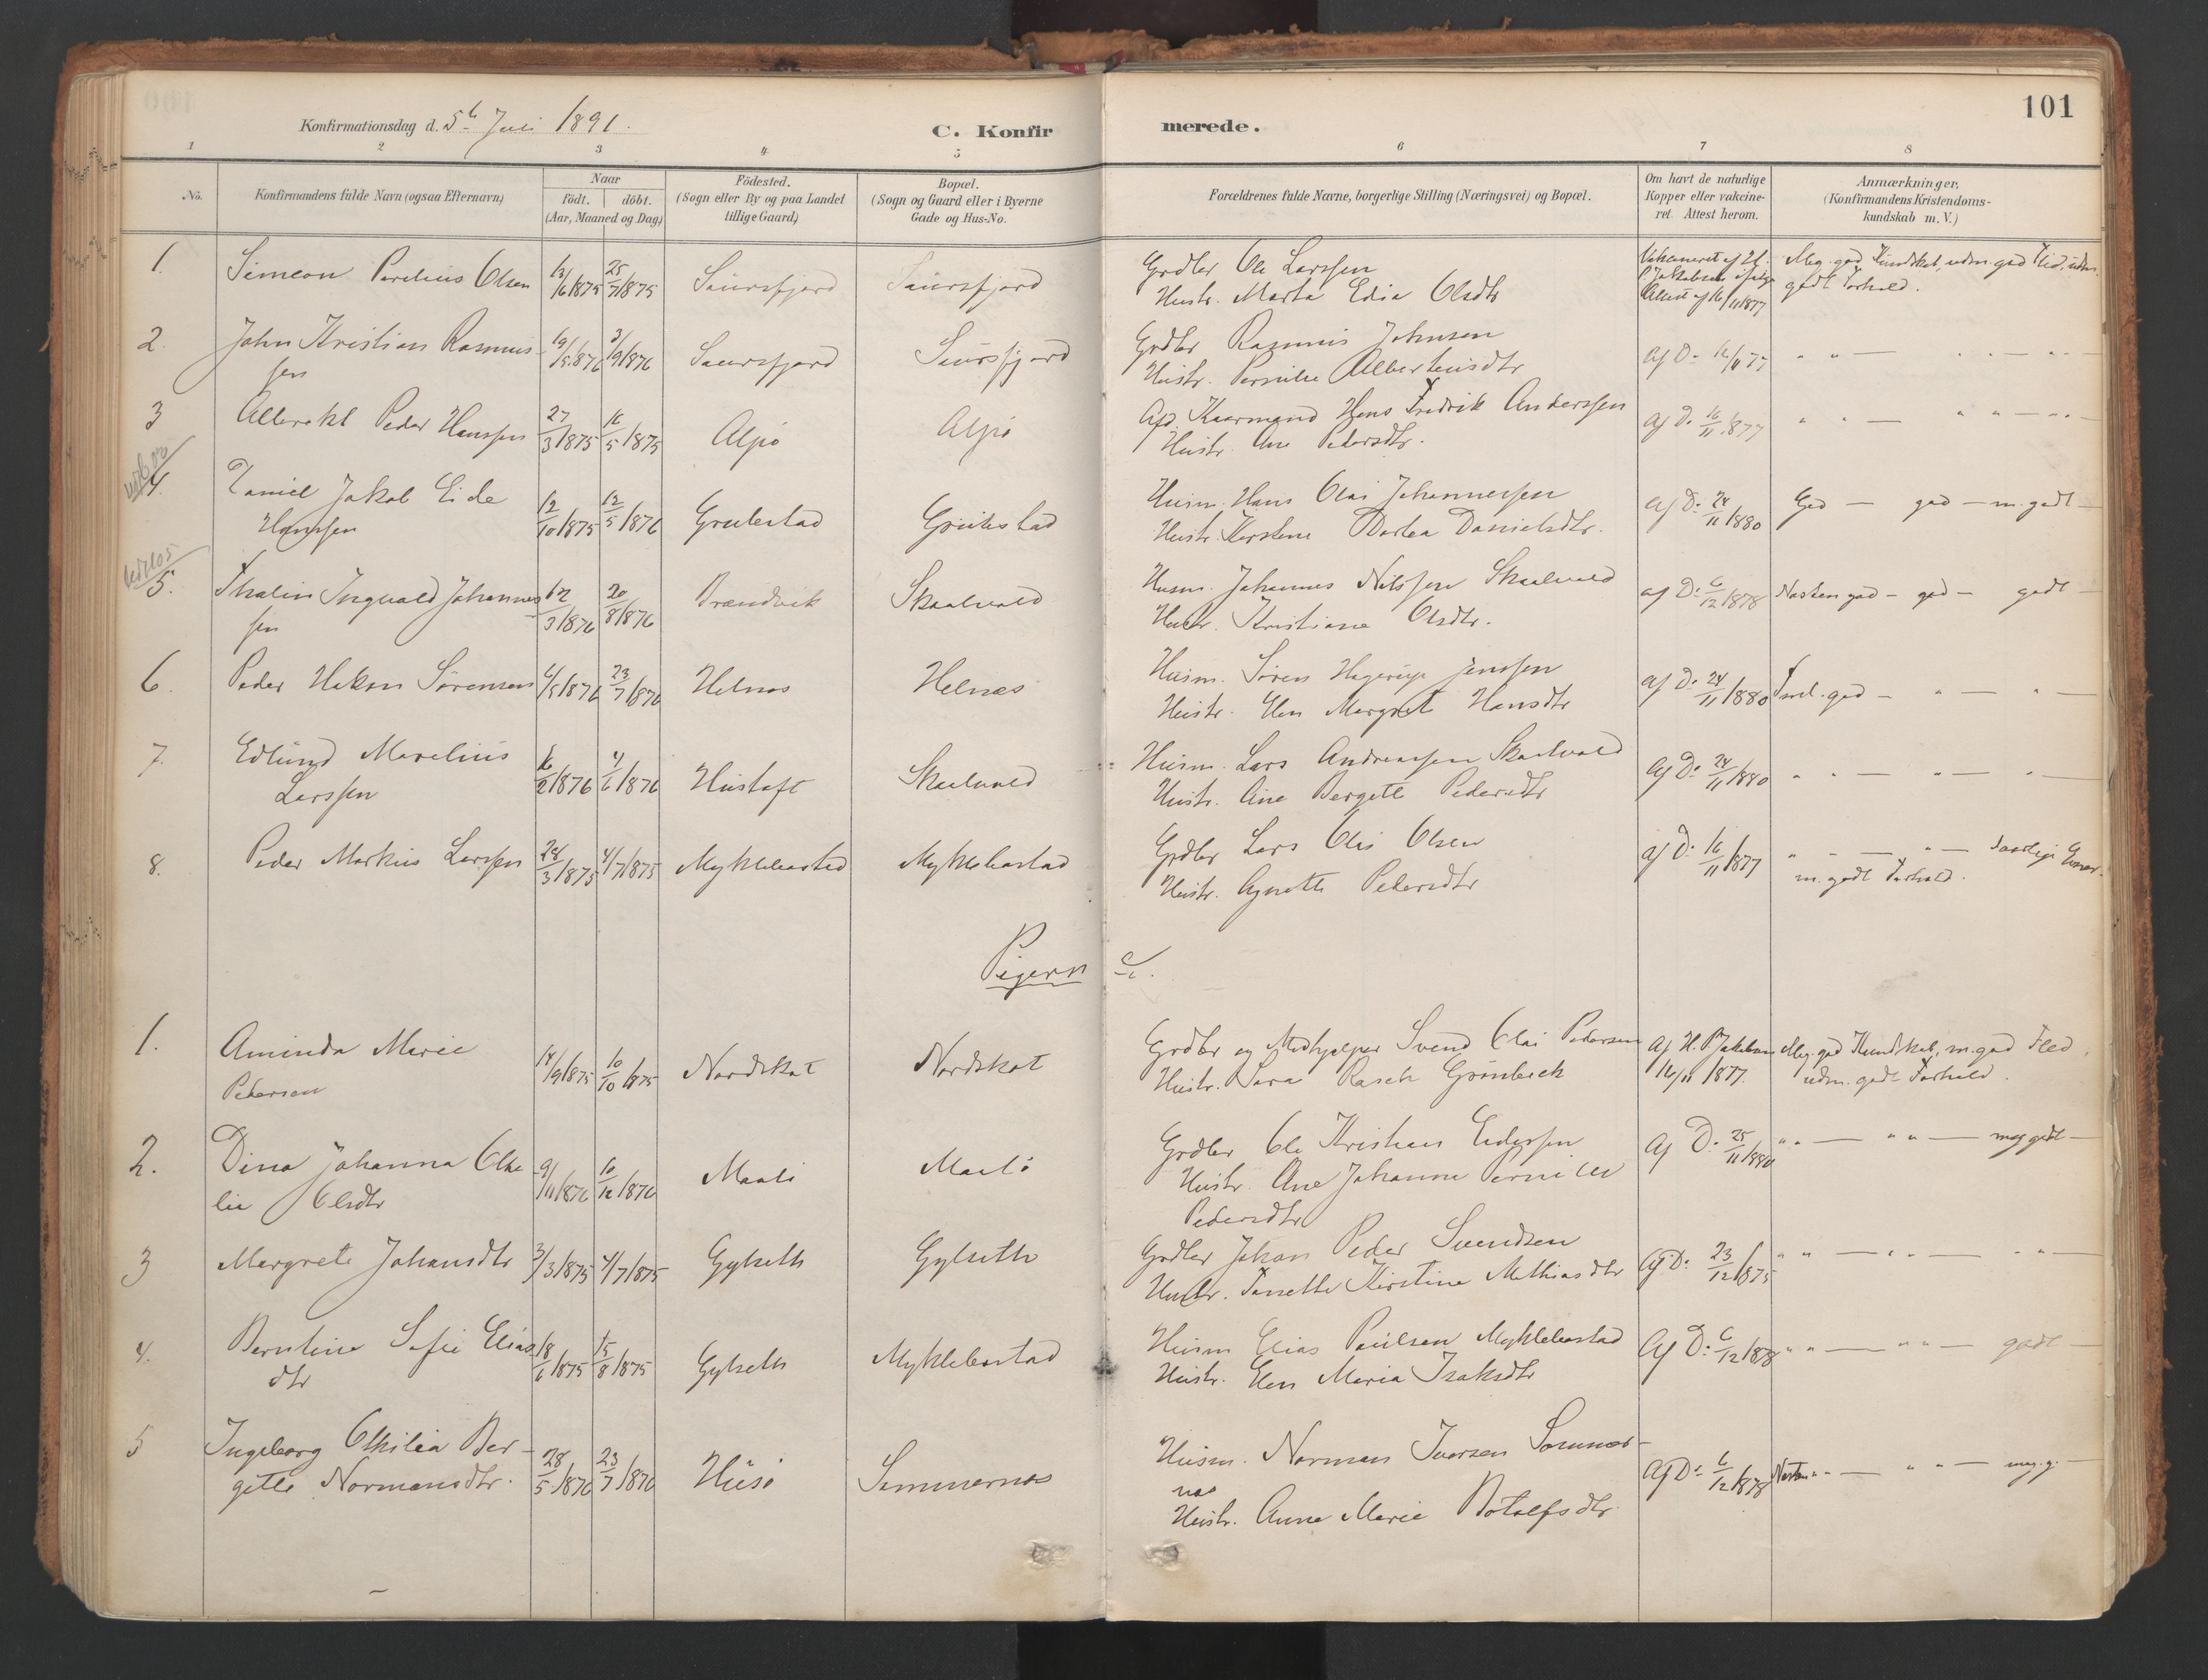 101
Konfirmationsdag d. 5te Juli 1891.
C. Konfirmerede.
1 2 3 4 5 6 7 8
No.
Konfirmandens fulde Navn (ogsaa Efternavn)
Naar
födt. döbt.
(Aar, Maaned og Dag)
Födested.
(Sogn eller By og paa Landet
tillige Gaard)
Bopæl.
(Sogn og Gaard eller i Byerne
Gade og Hus-No.
Forældrenes fulde Navne, borgerlige Stilling (Næringsvei) og Bopæl.
Om havt de naturlige
Kopper eller vakcine-
ret. Attest herom.
Anmærkninger.
(Konfirmandens Kristendoms-
kundskab m. V.)
1. Simeon Parelius Olsen 13/6 1875 25/7 1875 Saursfjord Saursfjord Grdbr Ole Larssen
Hustr. Marta Edia Olsdtr
Vakcineret af H.
P. Jakobsen ifølge
Attest af 16/11 1877
Meg. god Kundskab, udm. god Flid, udm.
godt Forhold.
2. John Kristian Rasmus-
sen 19/5 1876 3/9 1876 Saursfjord Saursfjord Grdbr Rasmus Johnsen
Hustr. Pernille Albertinusdtr
af D: 16/11 77 " " — " " — " "
3 Albrekt Peder Hanssen 27/3 1875 16/5 1875 Alpø Alpø Afd. Kaarmand Hans Fredrik Anderssen
Hustr. Ane Pedersdtr.
af D: 16/11 1877 " " — " " — " " —
4. Daniel Jakob Eide
Hanssen 12/10 1875 12/5 1876 Grubestad Grubestad Husm. Hans Olai Johannessen
Hustr. Kirstine Dortea Danielsdtr.
af D: 24/11 1880 God — god — m. godt —
5. Thalin Ingvald Johannes-
sen 12/3 1876 20/8 1876 Brændvik Skaalvold Husm. Johannes Nilssen Skaalvold
Hustr. Kristiane Olsdtr.
af D: 6/12 1878 Næsten god — god — godt —
6. Peder Hakon Sørensen 4/5 1876 23/7 1876 Helnes Helnæs Husm. Søren Hagerup Jenssen
Hustr. Elen Margret Hansdtr
af D: 24/11 1880 god — " — " —
7. Edlund Marelius
Larssen 16/2 1876 4/6 1876 Hustoft Skaalvold Husm. Lars Andreassen Skaalvold
Hustr. Ane Bergete Pedersdtr
af D: 24/11 1880 " " — " — " —
8. Peder Markus Larssen 28/3 1875 4/7 1875 Myklebostad Myklebostad Grdbr Lars Olai Olsen
Hustr. Agnethe Pedersdtr
af D: 16/11 1877
m. godt Forhold.
Pigerne.
1. Aminda Marie
Pedersen 14/9 1875 10/10 1875 Nordskot Nordskot Grdbr og Medhjelper Svend Olai Pedersen
Hustr. Sara Rasch Grønbeck
Af H. P. Jakobsen
16/11 1877.
Meg. god Kundskab, m. god Flid,
udm. godt Forhold.
2. Dina Johanna Ote-
lie Olsdtr 9/11 1876 10/12 1876 Maalø Maalø Grdbr Ole Kristian Endresen
Hustr. Ane Johanna Pernille
Pedersdtr
Af D: 25/11 1880 " " — " " — meg godt —
3 Margrete Johansdtr 3/3 1875 4/7 1875 Gylseth Gylseth Grdbr Johan Peder Svendsen
Hustr. Fanette Kirstine Mathiasdtr
Af D: 23/12 1875 " " — " " — " " —
4. Berntine Sofie Elias-
dtr 18/6 1875 15/8 1875 Gylseth Myklebostad Husm Elias Paulsen Myklebostad
Hustr. Elen Maria Isaksdtr
Af D: 6/12 1878 " " — " " — godt —
5 Ingeborg Othilia Ber-
gette Normansdtr. 28/5 1876 23/7 1876 Husø Sommernes Husm. Norman Iversen Sommer-
nes
Hustr. Anna Marie Botolfsdtr.
Af D: 6/12 1878 Næsten " " — " " — meg. g. —